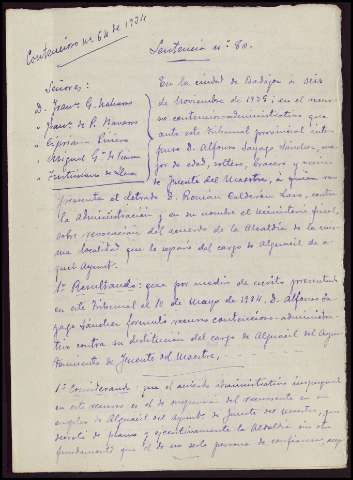 Contencioso nº 64 de 1934
Sentencia nº 80.
Señores:
D. Franco G. Naharro
" Franco de P. Navarro
" Cipriano Piñero
" Miguel G. de
" Justiniano de Luna
En la ciudad de Badajoz a seis
de Noviembre de 1935; en el recur-
so contencioso-administrativo que
ante este Tribunal provincial inter-
puso D. Alfonso Zapago Sánchez, ma-
yor de edad, soltero, bracero y vecino
de Fuente del Maestre, a quien re-
presenta el letrado D. Román Calderón Lazo, contra
la administración y en su nombre el ministerio fiscal,
sobre revocación del acuerdo de la Alcaldía de la mis-
ma localidad que le separó del cargo de alguacil de a-
quel Ayuntº.
1º Resultando: que por medio de escrito presentado
en este Tribunal el 10 de Mayo de 1934, D. Alfonso Za-
pago Sánchez formuló recurso contencioso-administra-
tivo contra su destitución del cargo de Alguacil del Ayun-
tamiento de Fuente del Maestre,
1º Considerando: que el acuerdo administrativo impugnado
en este recurso es el de suspensión del recurrente en su
empleo de Alguacil del Ayuntº de Fuente del Maestre, que
decretó de plano y ejecutivamente la Alcaldía sin otro
fundamento que el de no serle persona de confianza,